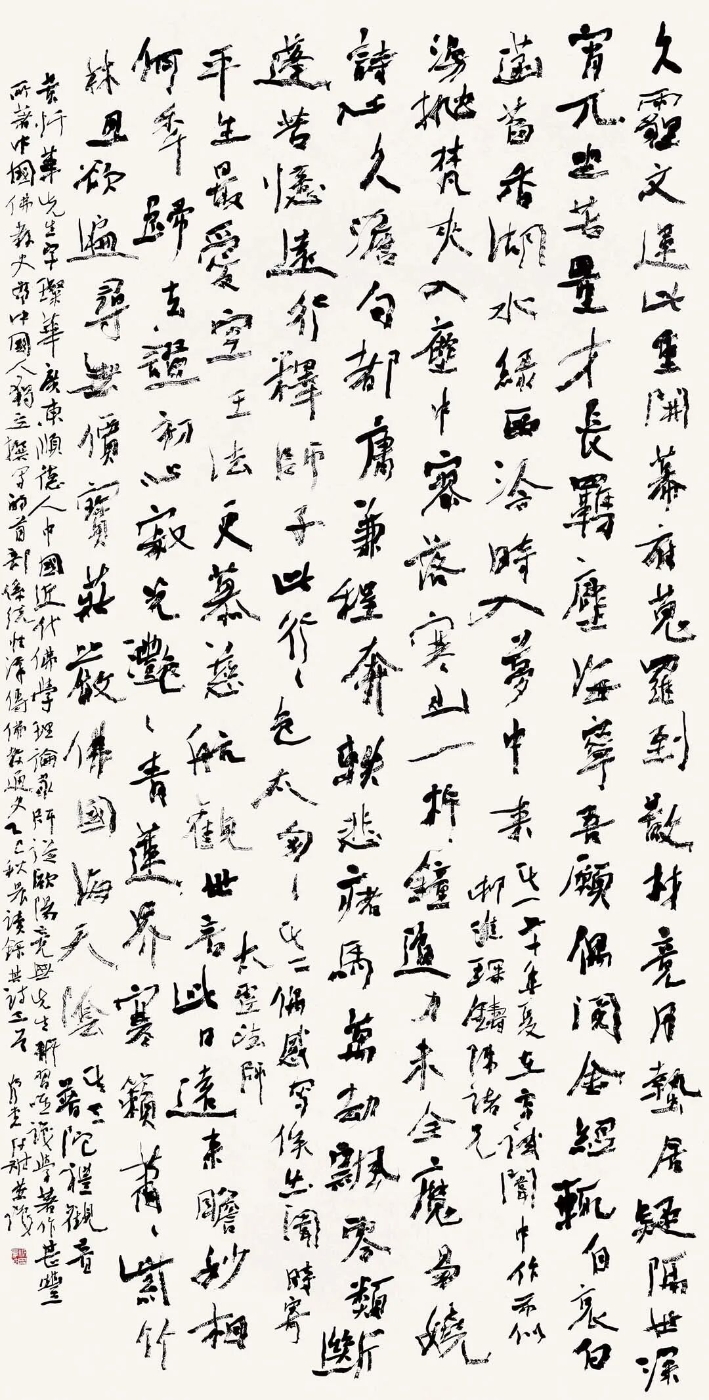 久霾文運此重開幕府蒐羅到散材竟月蟄居疑隔世深
宵兀坐若量才長羈塵海寧吾願偶閱金經輒自哀白
菡萏香湖水綠西涼時入夢中來其一
七十年夏在京誠闈中作示似
邨進琛鑄陳諸兄
海拋梵夾入塵中寥落寒山一杵鐘道力未全魔易嬈
詩心久澹句都庸兼程奔軼悲瘏馬萬劫飄零類斷
蓬苦憶遠行釋師子此行行色太匆匆其二偶感寄侯出闈時寄
太虛法師
平生最愛空王法更慕慈航觀世音此日遠來瞻妙相
何年歸去證初心寂光灩灩青蓮界寒籟蕭蕭紫竹
林且欲遍尋無價寶莊嚴佛國海天陰其三
普陀禮觀音
黃懺華先生字璨華廣東順德人中國近代佛學理論家師從歐陽竟無先生研習唯識學著作甚豐
所著中國佛教史為中國人獨立撰寫的首部系統性漢傳佛教通史乙巳秋